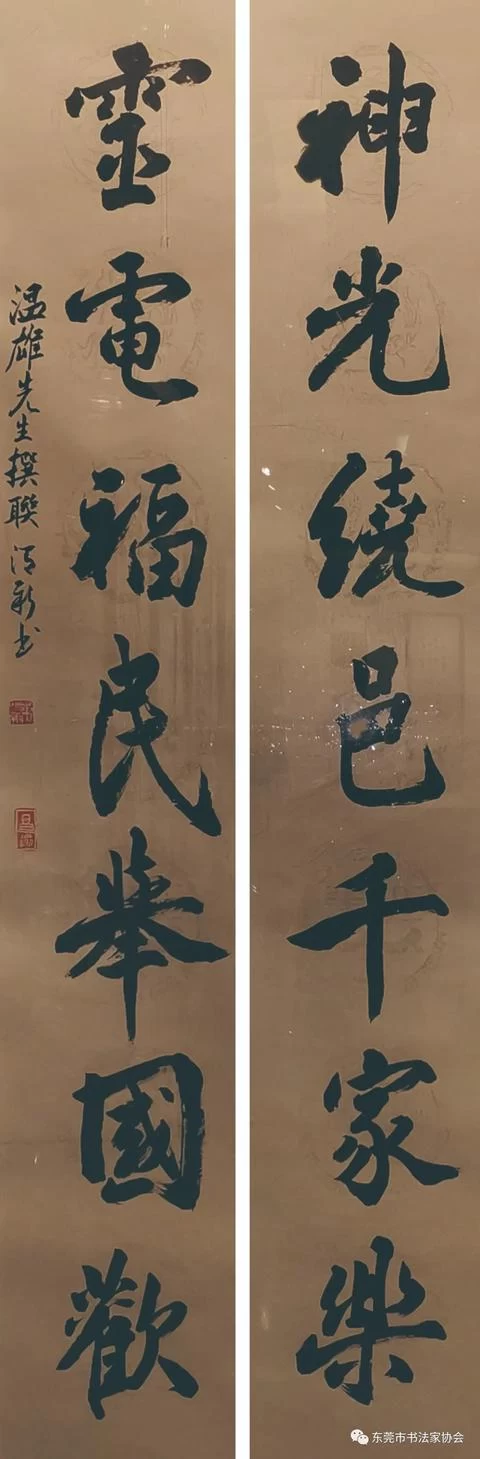 神光繞邑千家樂
靈電福民舉國歡
温雄先生撰聯
书
东莞市书法家协会